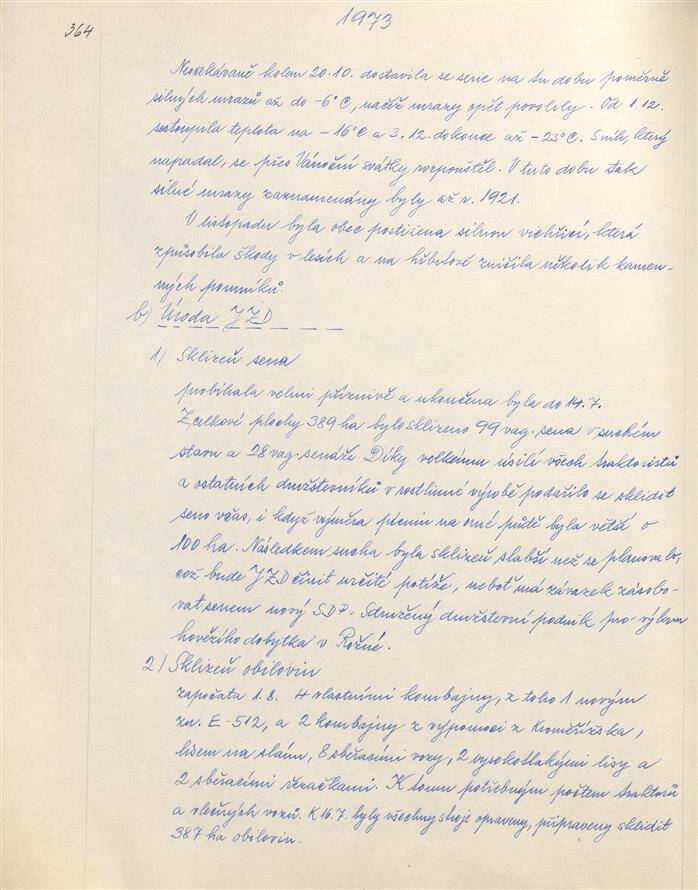 364
1973
Neočekávaně kolem 20.10. dostavila se serie na tu dobu poměrně
silných mrazů až do -6°C, načež mrazy opět povolily. Od 1.12.
sestoupila teplota na -16°C a 3.12. dokonce až -23°C. Sníh, který
napadal, se přes Vánoční svátky rozpouštěl. V tuto dobu tak
silné mrazy zaznamenány byly až r. 1921.
V listopadu byla obec postižena silnou vichřicí, která
způsobila škody v lesích a na hřbitově zničila několik kamen-
ných pomníků.
b) Úroda JZD
1) Sklizeň sena
probíhala velmi příznivě a ukončena byla do 14.7.
Z celkové plochy 389 ha bylo sklizeno 99 vag. sena v suchém
stavu a 28 vag. senáže. Díky velkému úsilí všech traktoristů
a ostatních družstevníků v rostlinné výrobě podařilo se sklidit
seno včas, i když výměra pícnin na orné půdě byla větší o
100 ha. Následkem sucha byla sklizeň slabší než se plánovalo,
což bude JZD činit určité potíže, neboť má závazek zásobo-
vat senem nový SDP = Sdružený družstevní podnik pro výkrm
hovězího dobytka v Rožné.
2) Sklizeň obilovin
započata 1.8. 4 vlastními kombajny, z toho 1 novým
zn. E-512, a 2 kombajny z výpomoci z Kroměřížska,
lisem na slámu, 8 sběracími vozy, 2 vysokotlakými lisy a
2 sběracími řezačkami. K tomu potřebným počtem traktorů
a vlečných vozů. K 16.7. byly všechny stroje opraveny, připraveny sklidit
387 ha obilovin.